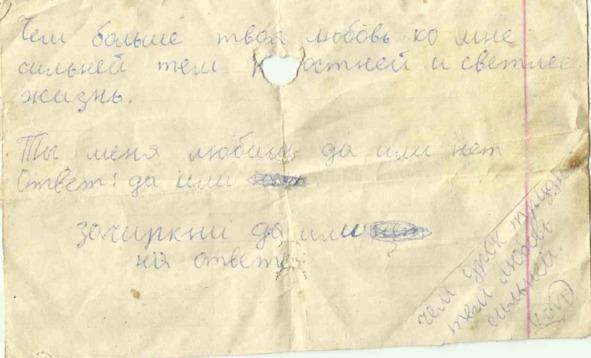 Чем больше твоя любовь ко мне
сильней тем остней и светлее
жизнь.
Ты меня любишь да или нет
Ответ: да или
зачиркни да или нет
на ответе.
чем
тем любовь
сильней